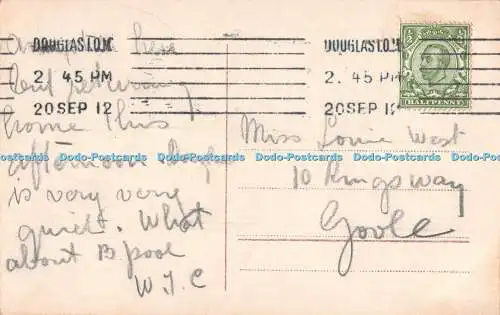 DOUGLAS I.O.M.
2. 45 PM
20 SEP 12
DOUGLAS I.O.M.
2. 45 PM
20 SEP 12
HALFPENNY
here
but returning
home this
afternoon
is very very
quiet. What
about B.pool
W.J.C
Miss Louie West
10 Kingsway
Goole
Dodo-Postcards Dodo-Postcards Dodo-Postcards Dodo-Postcards Dodo-Postcards Dodo-Postcards